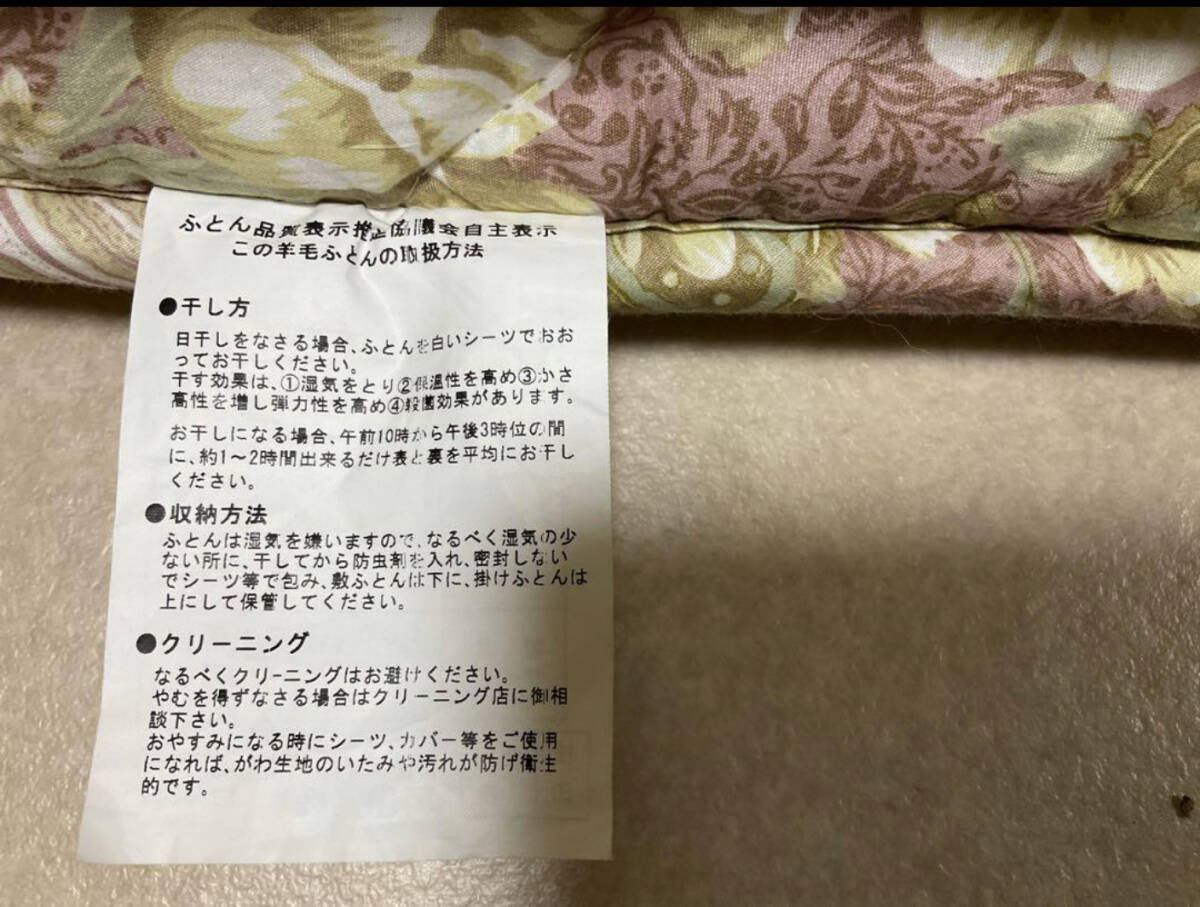 ふとん品質表示推進協議会自主表示
この羊毛ふとんの取扱方法
●干し方
日干しをなさる場合、ふとんを白いシーツでおお
ってお干しください。
干す効果は、①湿気をとり②保温性を高め③かさ
高性を増し弾力性を高め④殺菌効果があります。
お干しになる場合、午前10時から午後3時位の間
に、約1～2時間出来るだけ表と裏を平均にお干し
ください。
●収納方法
ふとんは湿気を嫌いますので、なるべく湿気の少
ない所に、干してから防虫剤を入れ、密封しない
でシーツ等で包み、敷ふとんは下に、掛けふとんは
上にして保管してください。
●クリーニング
なるべくクリーニングはお避けください。
やむを得ずなさる場合はクリーニング店に御相
談下さい。
おやすみになる時にシーツ、カバー等をご使用
になれば、がわ生地のいたみや汚れが防げ衛生
的です。